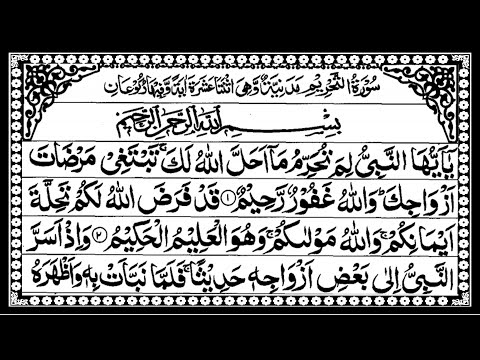 سُوْرَةُ التَّحْرِيْمِ مَدَنِيَّةٌ وَّهِيَ اثْنَتَا عَشْرَةَ اٰيَةً وَّفِيْهَا رُكُوْعَانِ
بِسْمِ اللّٰهِ الرَّحْمٰنِ الرَّحِيْمِ
يٰۤاَيُّهَا النَّبِيُّ لِمَ تُحَرِّمُ مَاۤ اَحَلَّ اللّٰهُ لَكَ ۚ تَبْتَغِيْ مَرْضَاتَ
اَزْوَاجِكَ ؕ وَاللّٰهُ غَفُوْرٌ رَّحِيْمٌ ۝۱ قَدْ فَرَضَ اللّٰهُ لَكُمْ تَحِلَّةَ
اَيْمَانِكُمْ ۚ وَاللّٰهُ مَوْلٰىكُمْ ۚ وَهُوَ الْعَلِيْمُ الْحَكِيْمُ ۝۲ وَاِذْ اَسَرَّ
النَّبِيُّ اِلٰى بَعْضِ اَزْوَاجِهٖ حَدِيْثًا ۚ فَلَمَّا نَبَّاَتْ بِهٖ وَاَظْهَرَهُ